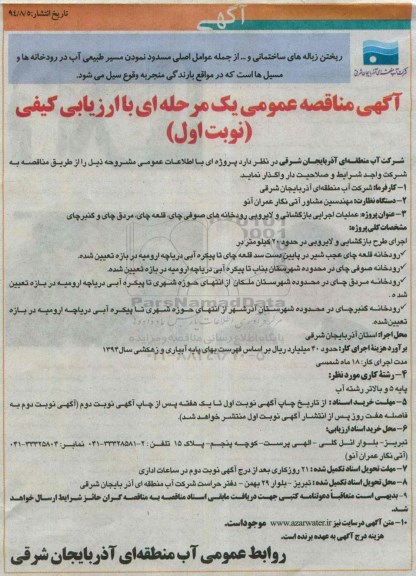 آگهی
تاریخ انتشار: ۹۴/۸/۵
ریختن زباله های ساختمانی و... از جمله عوامل اصلی مسدود نمودن مسیر طبیعی آب در رودخانه ها و
مسیل ها است که در مواقع بارندگی منجر به وقوع سیل می شود.
آگهی مناقصه عمومی یک مرحله ای با ارزیابی کیفی
(نوبت اول)
شرکت آب منطقه‌ای آذربایجان شرقی در نظر دارد پروژه ای با اطلاعات عمومی مشروحه ذیل را از طریق مناقصه به
شرکت واجد شرایط و صلاحیت دار واگذار نماید.
۱- کارفرما: شرکت آب منطقه‌ای آذربایجان شرقی
۲- دستگاه نظارت: مهندسین مشاور آتی نگار عمران آنو
۳- عنوان پروژه: عملیات اجرایی بازگشائی و لایروبی رودخانه های صوفی چای، قلعه چای، مردق چای و گنبرچای
مشخصات کلی پروژه:
اجرای طرح بازگشایی و لایروبی در حدود ۲۰ کیلومتر در
✓رودخانه قلعه چای عجب شیر در پایین دست سد قلعه چای تا پیکره آبی دریاچه ارومیه در بازه تعیین شده.
✓رودخانه صوفی چای در محدوده شهرستان بناب تا پیکره آبی دریاچه ارومیه در بازه تعیین شده.
✓رودخانه مردق چای در محدوده شهرستان ملکان از انتهای حوزه شهری تا پیکره آبی دریاچه ارومیه در بازه تعیین
شده.
✓رودخانه گنبرچای در محدوده شهرستان آذرشهر از انتهای حوزه شهری تا پیکره آبی دریاچه ارومیه در بازه
تعیین شده.
محل اجرا: استان آذربایجان شرقی
برآورد هزینه اجرای کار: حدود ۳۰ میلیارد ریال بر اساس فهرست بهای پایه آبیاری و زهکشی سال ۱۳۹۳
مدت اجرای کار: ۱۸ ماه شمسی
۴- رشته کاری مورد نظر:
پایه ۵ و بالاتر رشته آب
۵- مهلت خرید اسناد: از تاریخ چاپ آگهی نوبت اول تا یک هفته پس از چاپ آگهی نوبت دوم (آگهی نوبت دوم به
فاصله هفت روز پس از انتشار آگهی نوبت اول منتشر خواهد شد).
۶- محل خرید اسناد ارزیابی:
تبریز- بلوار ائل گلی - الهی پرست - کوچه پنجم - پلاک ۱۵ تلفن: ۲-۳۳۳۲۸۵۸۱-۰۴۱ نمابر: ۳۳۳۲۵۸۰۳-۰۴۱
(آتی نگار عمران آنو)
۷- مهلت تحویل اسناد تکمیل شده: ۲۱ روزکاری بعد از درج آگهی نوبت دوم در ساعات اداری
۸- محل تحویل اسناد تکمیل شده: تبریز - بلوار ۲۹ بهمن - دفتر حراست شرکت آب منطقه ای آذربایجان شرقی
۹- بدیهی است متعاقباً دعوتنامه کتبی جهت دریافت مابقی اسناد مناقصه به مناقصه گران حائز شرایط ارسال خواهد
شد.
۱۰- متن آگهی در سایت نیز www.azarwater.ir موجود است.
هزینه درج آگهی به عهده برنده است.
روابط عمومی آب منطقه‌ای آذربایجان شرقی